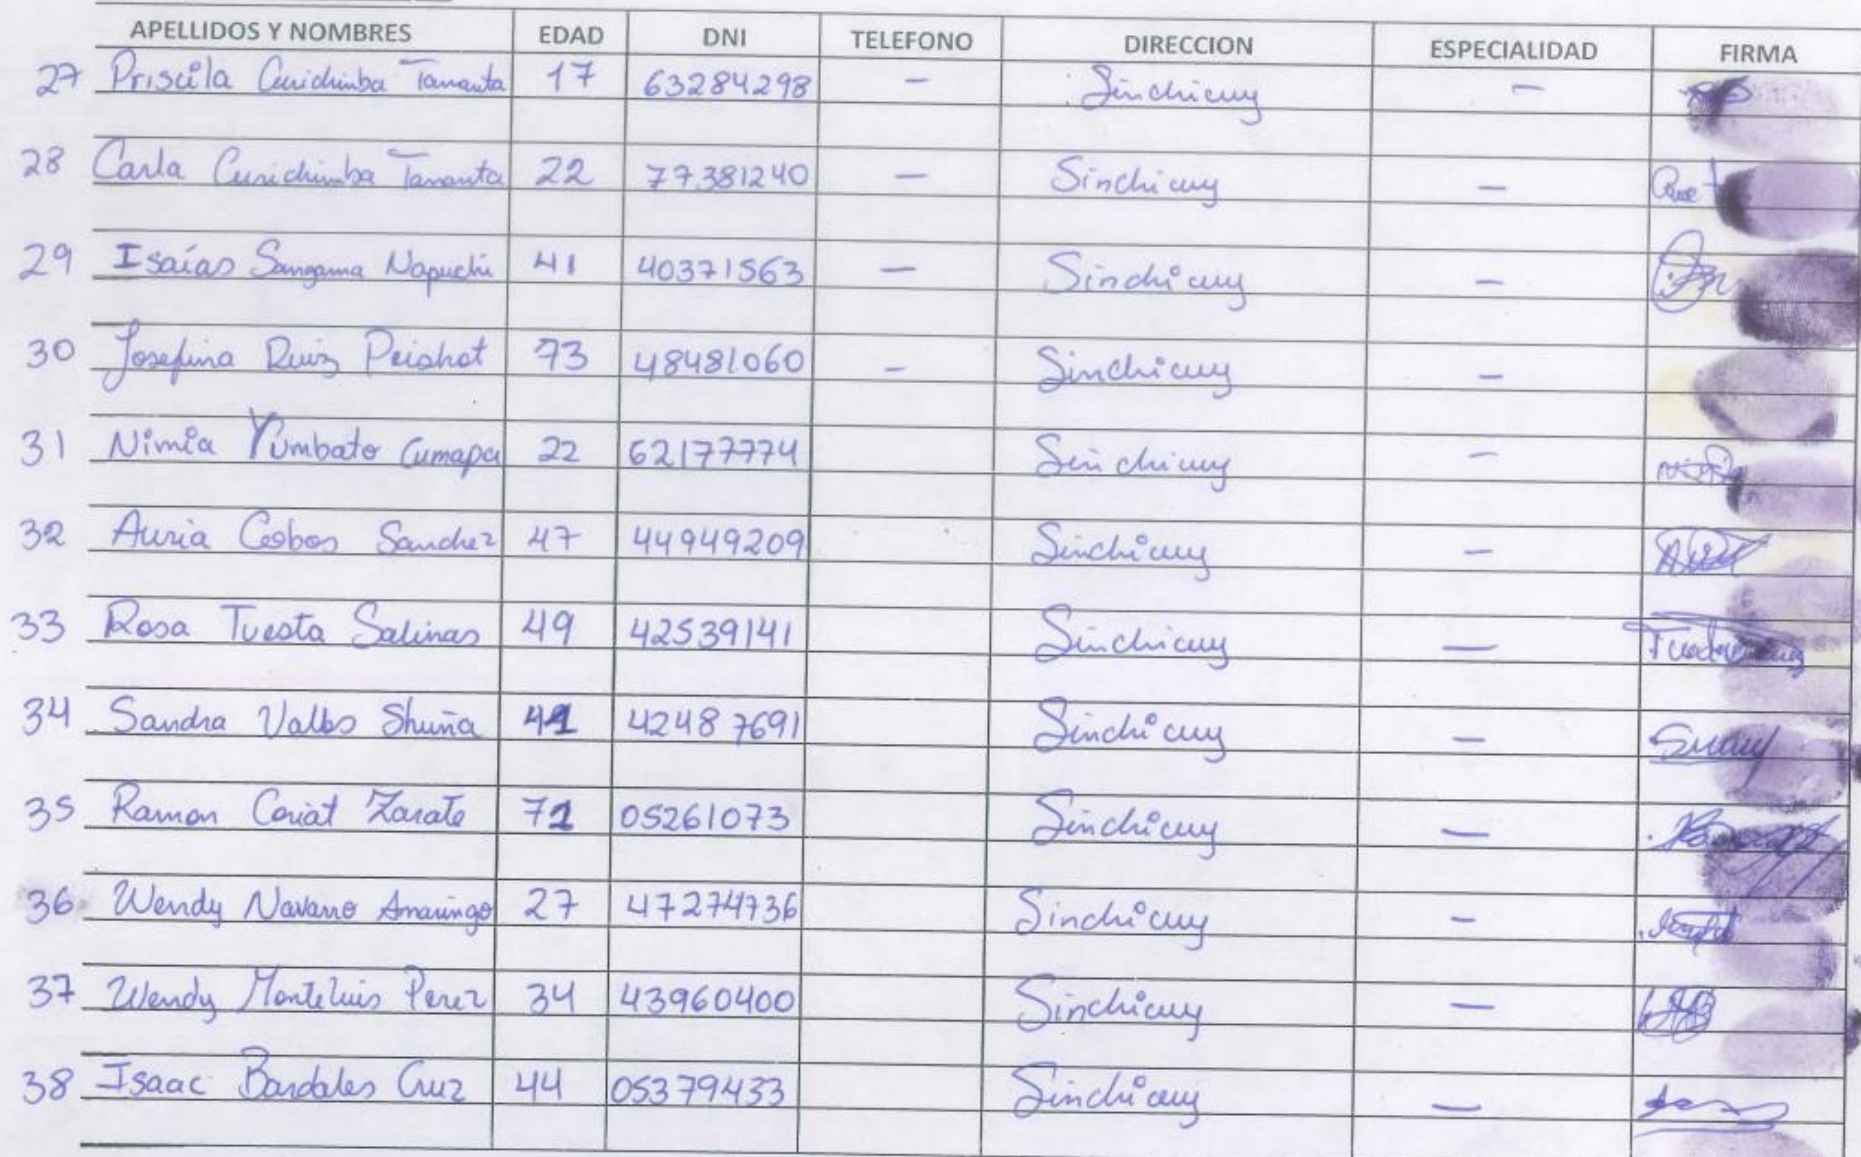 APELLIDOS Y NOMBRES EDAD DNI TELEFONO DIRECCION ESPECIALIDAD FIRMA
27 Priscila Curichimba Tananta 17 63284298 – Sinchicuy –
28 Carla Curichimba Tananta 22 77381240 – Sinchicuy –
29 Isaías Sangama Napuchi 41 40371563 – Sinchicuy –
30 Josefina Ruiz Peishot 73 48481060 – Sinchicuy –
31 Nimia Yumbato Cumapa 22 62177774 Sinchicuy –
32 Auria Cobos Sanchez 47 44949209 Sinchicuy –
33 Rosa Tuesta Salinas 49 42539141 Sinchicuy –
34 Sandra Valbs Shuña 41 42487691 Sinchicuy –
35 Ramon Coriat Zarate 71 05261073 Sinchicuy –
36 Wendy Navarro Amaringo 27 47274736 Sinchicuy –
37 Wendy Monteluis Perez 34 43960400 Sinchicuy –
38 Isaac Bardales Cruz 44 05379433 Sinchicuy –